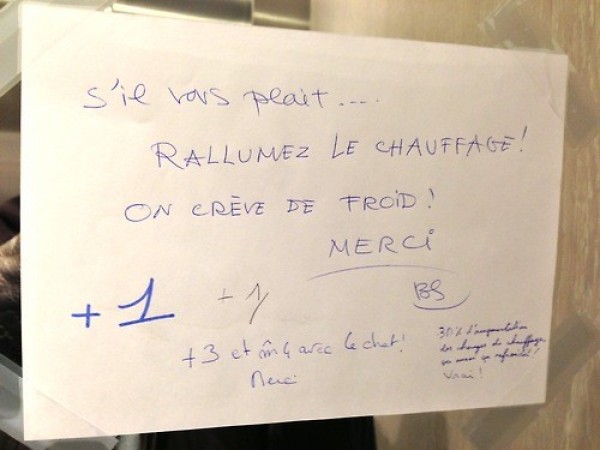 s'il vous plait....
RALLUMEZ LE CHAUFFAGE!
ON CRÈVE DE FROID!
MERCi
BS
+1 +1
+3 et m 4 avec le chat!
Merci
30% d'augmentation
des charges de chauffage,
ça refroidit!
Vrai!